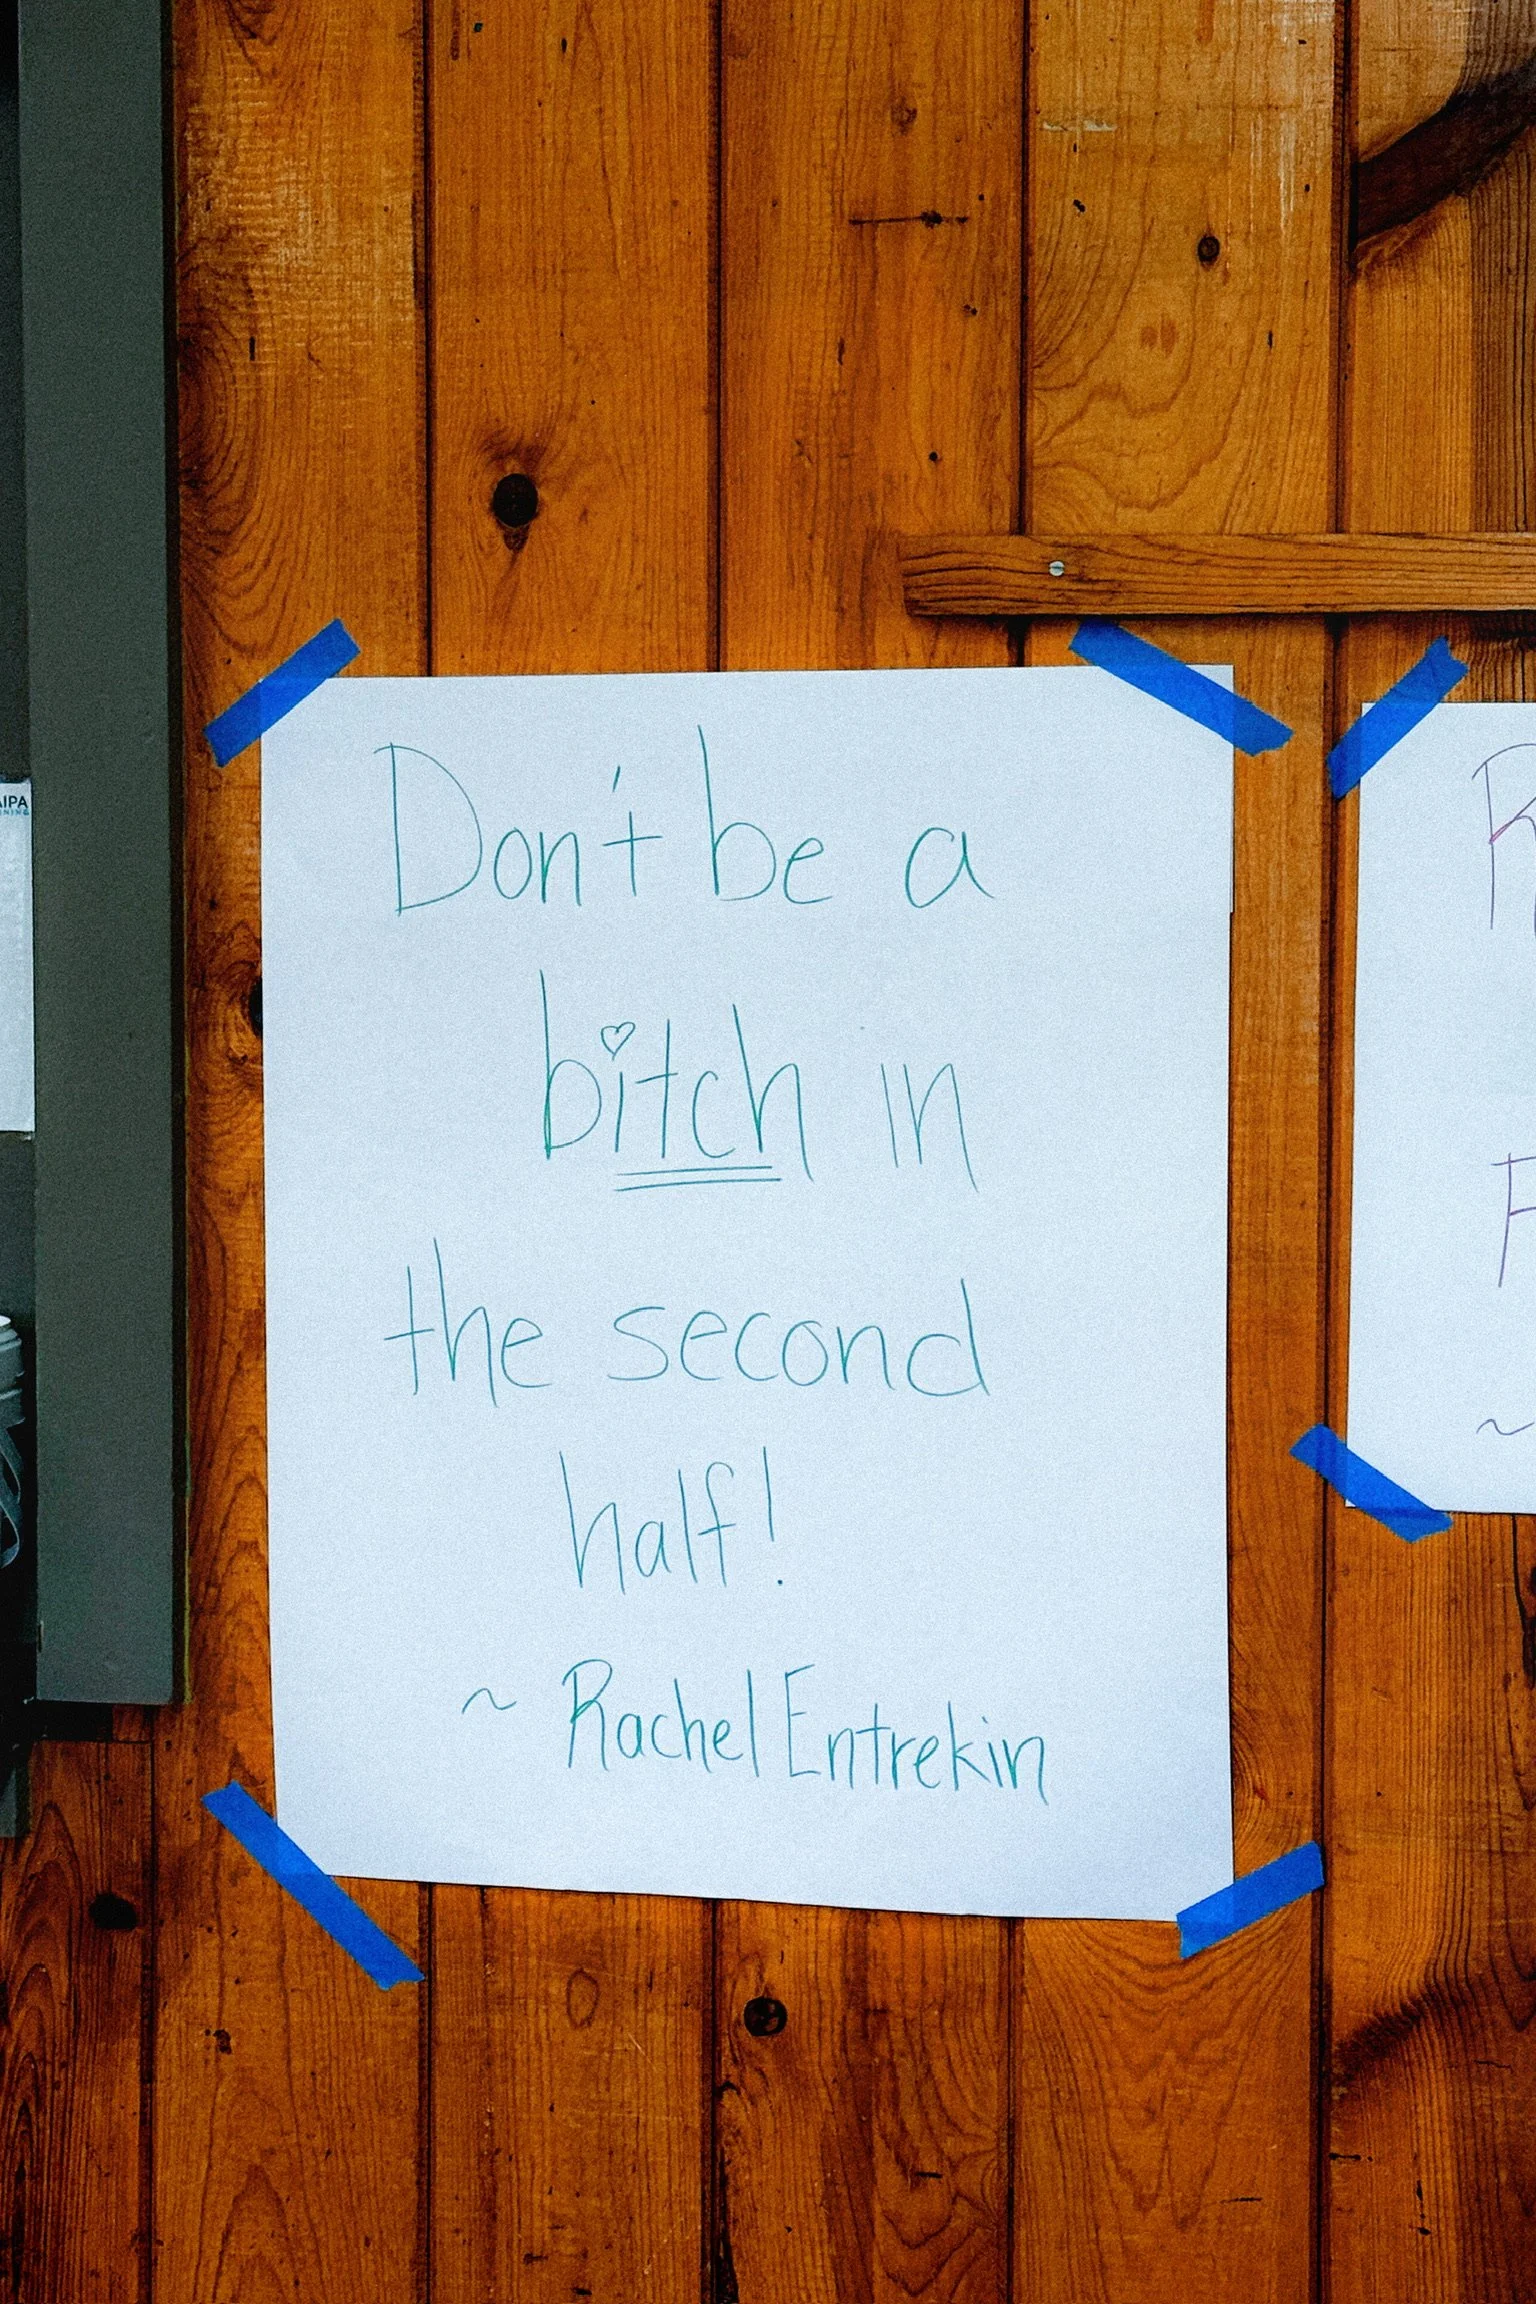 AIPA
NING
Don't be a
bitch in
the second
half!
~ Rachel Entrekin
R
F
~